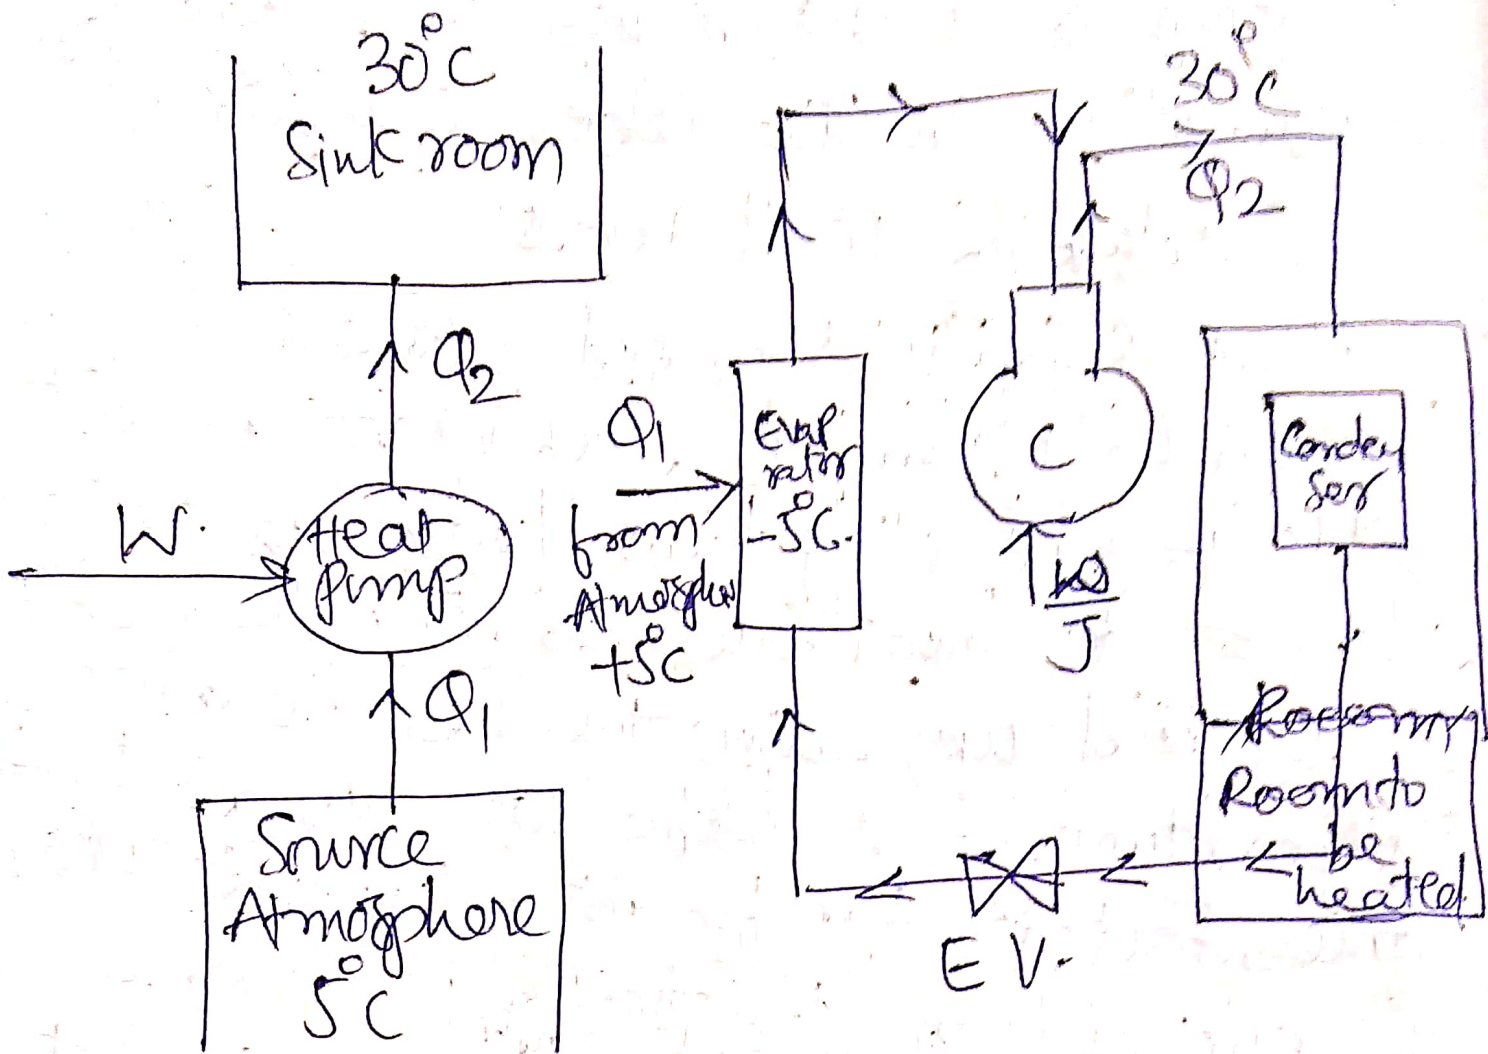 30°C
Sink room
Q2
W.
Heat
pump
Q1
Source
Atmosphere
5°C
30°C
Q2
Q1
from
Atmosphere
+5°C
Evap
rator
-5°C.
C
J
Conden
ser
Room to
be
heated
E V.